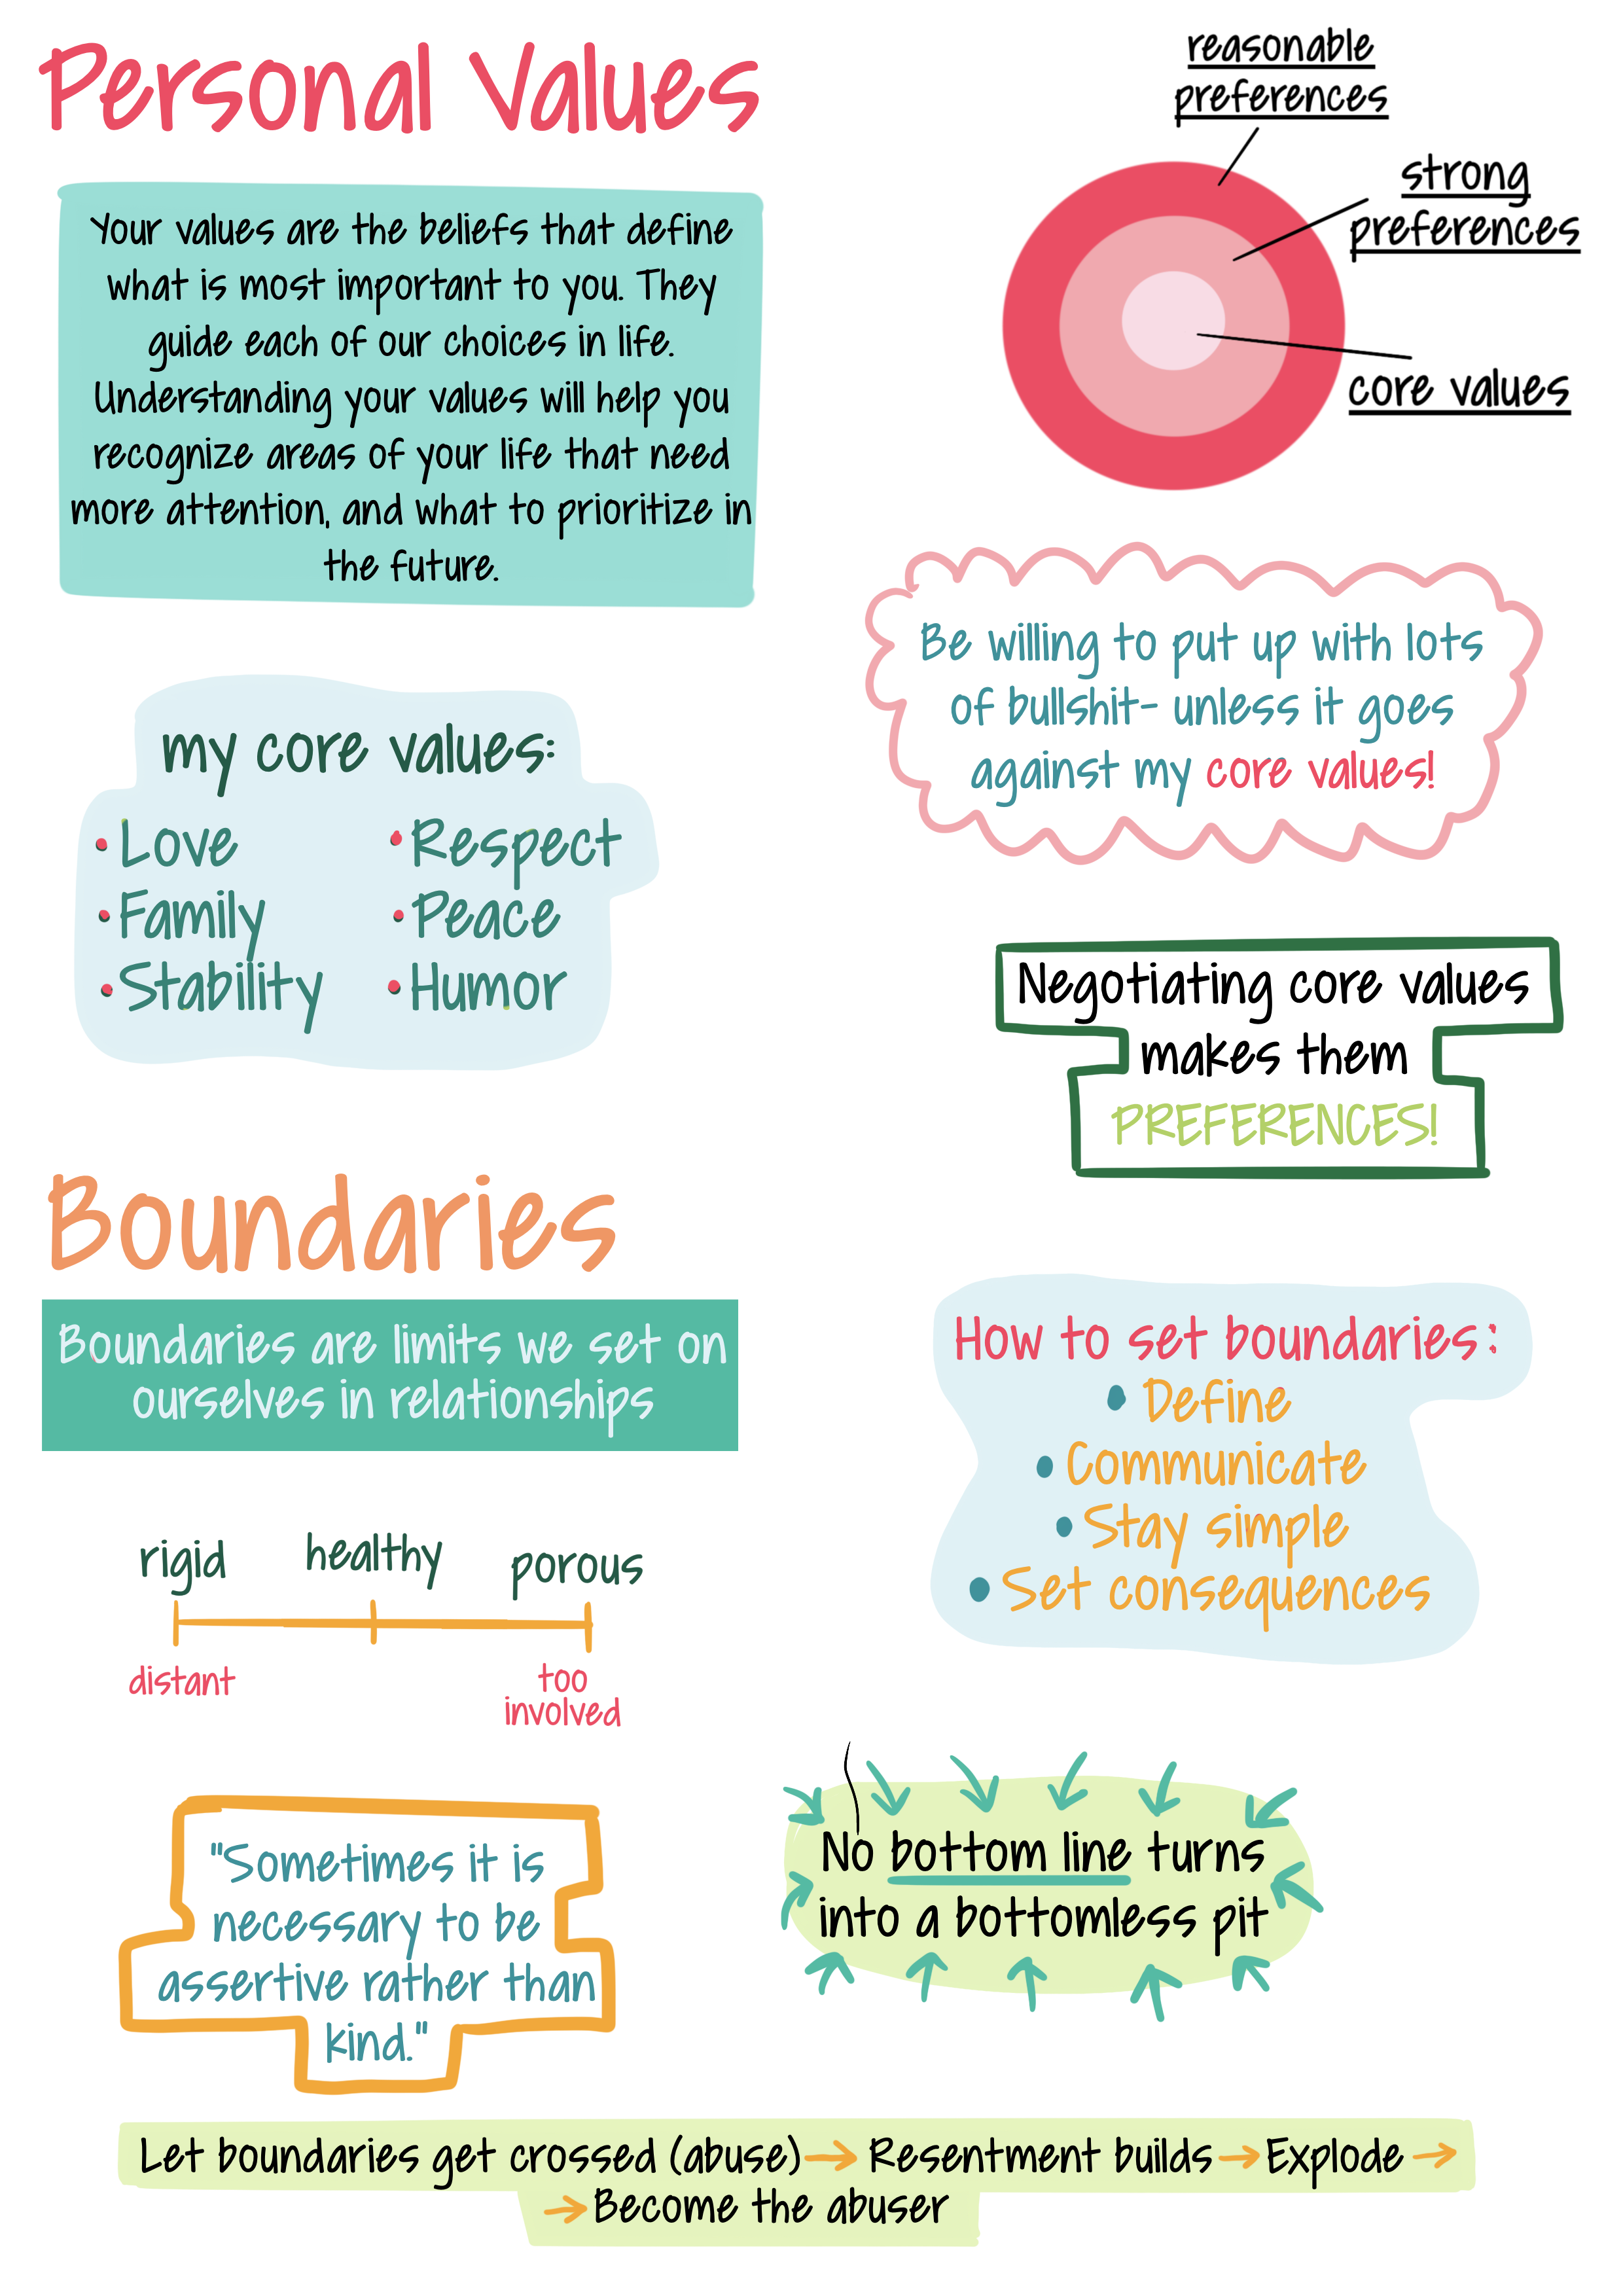 Personal Values
Your values are the beliefs that define
what is most important to you. They
guide each of our choices in life.
Understanding your values will help you
recognize areas of your life that need
more attention, and what to prioritize in
the future.
reasonable
preferences
strong
preferences
core values
my core values:
• Love
• Family
• Stability
• Respect
• Peace
• Humor
Be willing to put up with lots
of bullshit- unless it goes
against my core values!
Negotiating core values
makes them
PREFERENCES!
Boundaries
Boundaries are limits we set on
ourselves in relationships
How to set boundaries:
• Define
• Communicate
• Stay simple
• Set consequences
rigid
healthy
porous
distant
too
involved
"Sometimes it is
necessary to be
assertive rather than
kind."
No bottom line turns
into a bottomless pit
Let boundaries get crossed (abuse) → Resentment builds → Explode →
→ Become the abuser